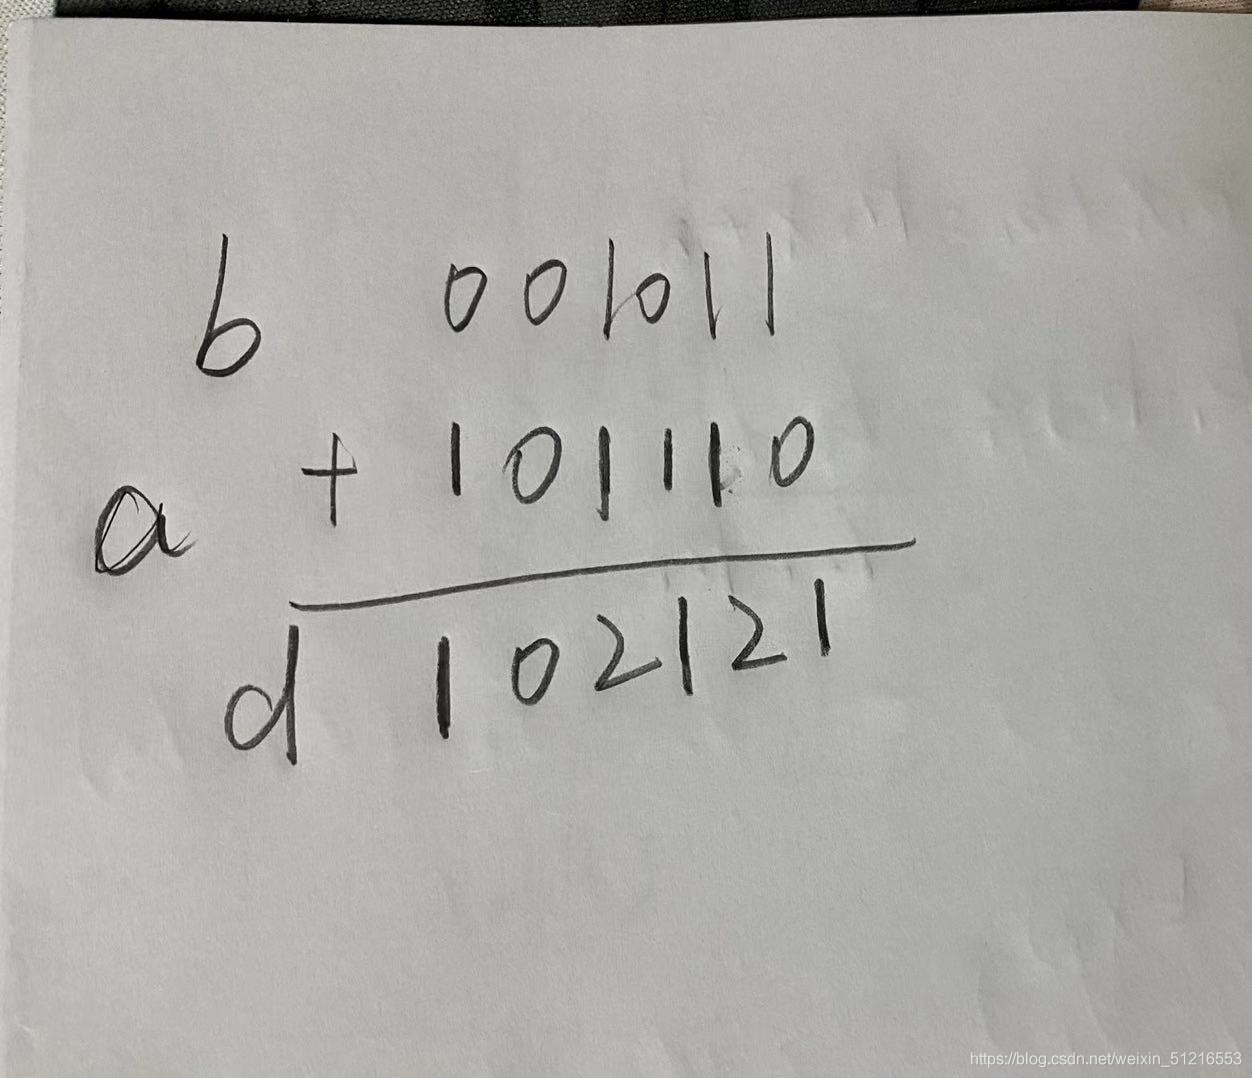 b 001011
a + 101110
d 102121
https://blog.csdn.net/weixin_51216553